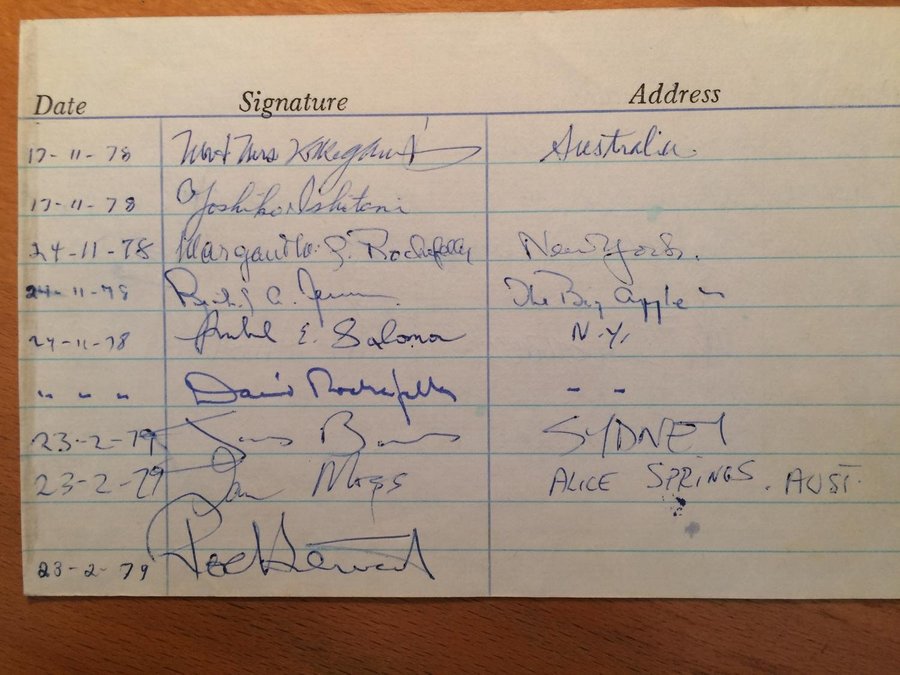 Date Signature Address
17-11-78 Mr & Mrs Australia.
17-11-78 Yoshiko Ishitani
24-11-78 S. Rockefeller New York.
24-11-78 C. The Big Apple "
24-11-78 E. Salomon N.Y.
" " " David Rockefeller " "
23-2-79 SYDNEY
23-2-79 Ian Mags ALICE SPRINGS. AUST.
23-2-79